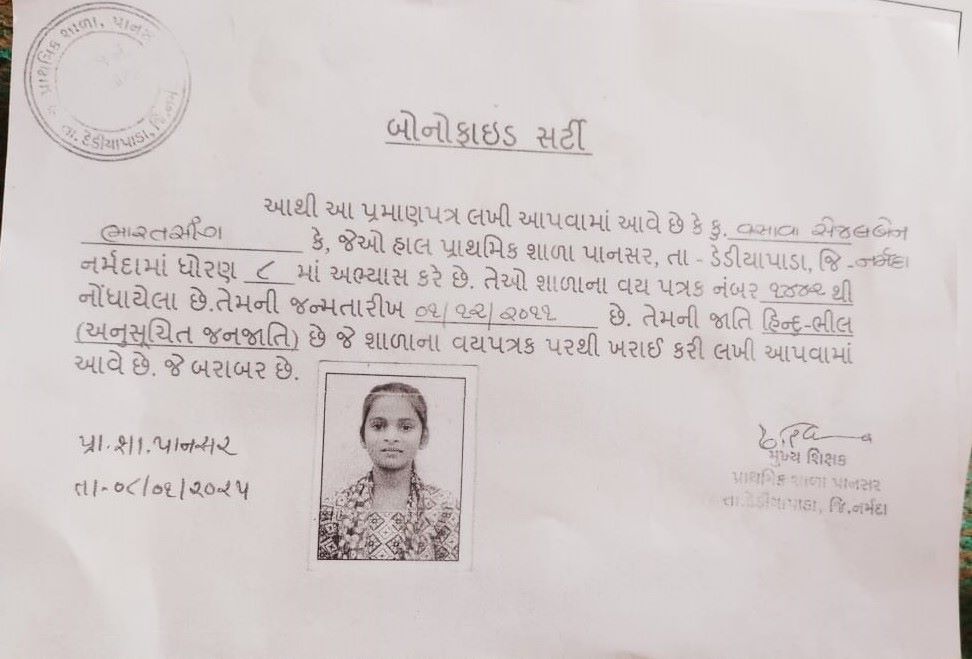 પ્રાથમિક શાળા, પાનસર
તા. ડેડીયાપાડા, જિ. નર્મ
બોનોફાઇડ સર્ટી
આથી આ પ્રમાણપત્ર લખી આપવામાં આવે છે કે કુ. વસાવા સેજલબેન
ભારતસીંગ કે, જેઓ હાલ પ્રાથમિક શાળા પાનસર, તા - ડેડીયાપાડા, જિ - નર્મદા
નર્મદામાં ધોરણ ૮ માં અભ્યાસ કરે છે. તેઓ શાળાના વય પત્રક નંબર ૧૪૪૨ થી
નોંધાયેલા છે.તેમની જન્મતારીખ ૦૧/૧૨/૨૦૧૧ છે. તેમની જાતિ હિન્દુ-ભીલ
(અનુસૂચિત જનજાતિ) છે જે શાળાના વયપત્રક પરથી ખરાઈ કરી લખી આપવામાં
આવે છે. જે બરાબર છે.
પ્રા.શા.પાનસર
તા-૦૮/૦૬/૨૦૨૫
મુખ્ય શિક્ષક
પ્રાથમિક શાળા પાનસર
તા.ડેડીયાપાડા, જિ.નર્મદા